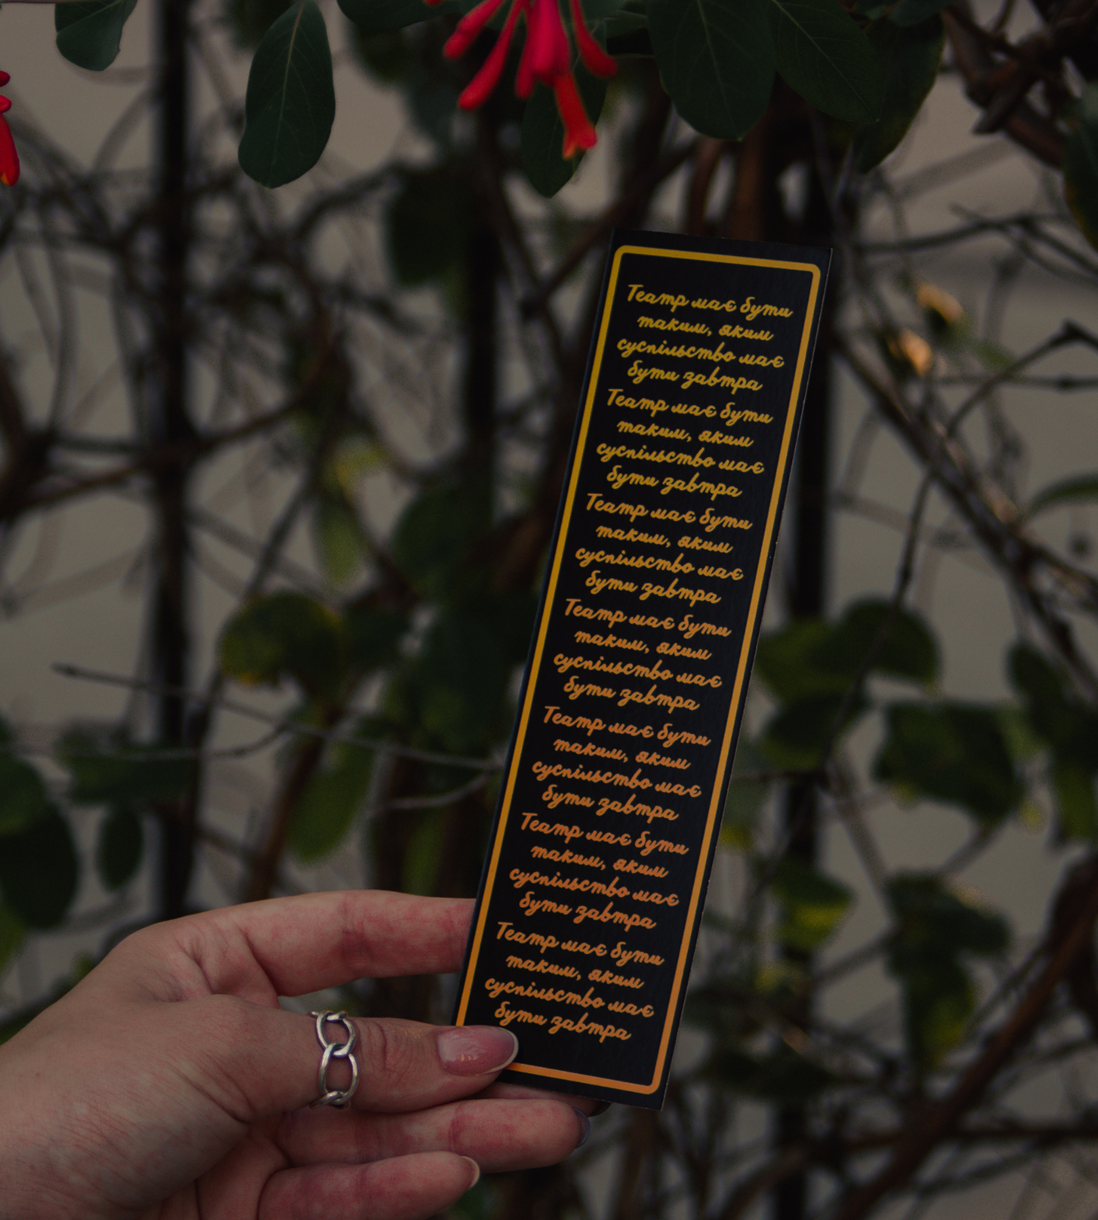 Театр має бути
таким, яким
суспільство має
бути завтра
Театр має бути
таким, яким
суспільство має
бути завтра
Театр має бути
таким, яким
суспільство має
бути завтра
Театр має бути
таким, яким
суспільство має
бути завтра
Театр має бути
таким, яким
суспільство має
бути завтра
Театр має бути
таким, яким
суспільство має
бути завтра
Театр має бути
таким, яким
суспільство має
бути завтра